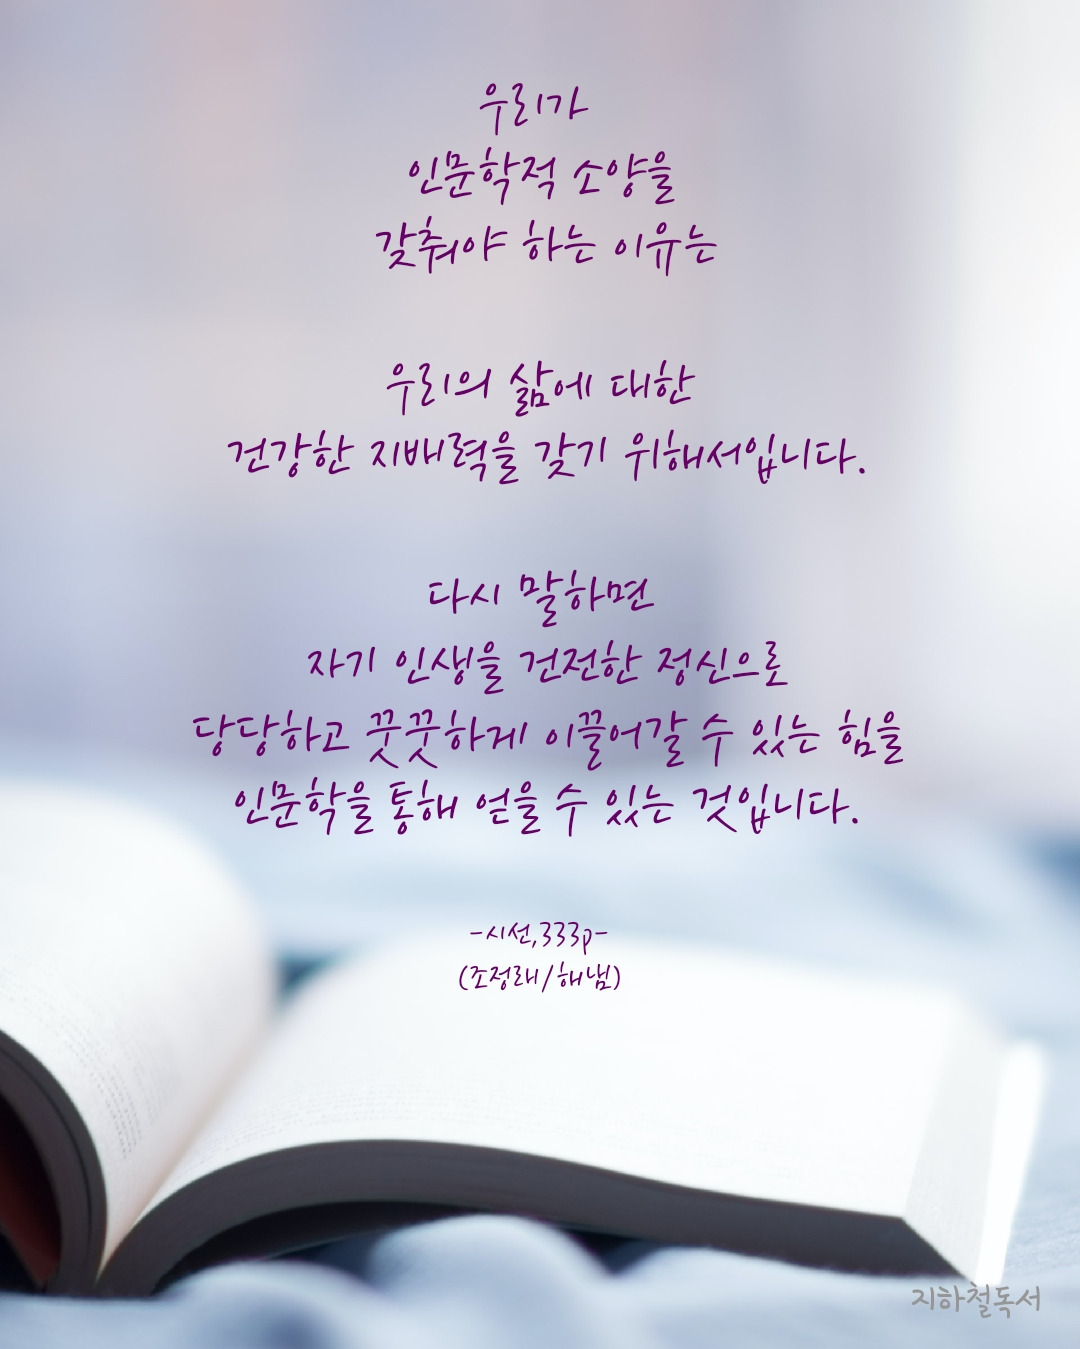 우리가
인문학적 소양을
갖춰야 하는 이유는
우리의 삶에 대한
건강한 지배력을 갖기 위해서입니다.
다시 말하면
자기 인생을 건전한 정신으로
당당하고 꿋꿋하게 이끌어갈 수 있는 힘을
인문학을 통해 얻을 수 있는 것입니다.
-시선,333p-
(조정래/해냄)
지하철독서